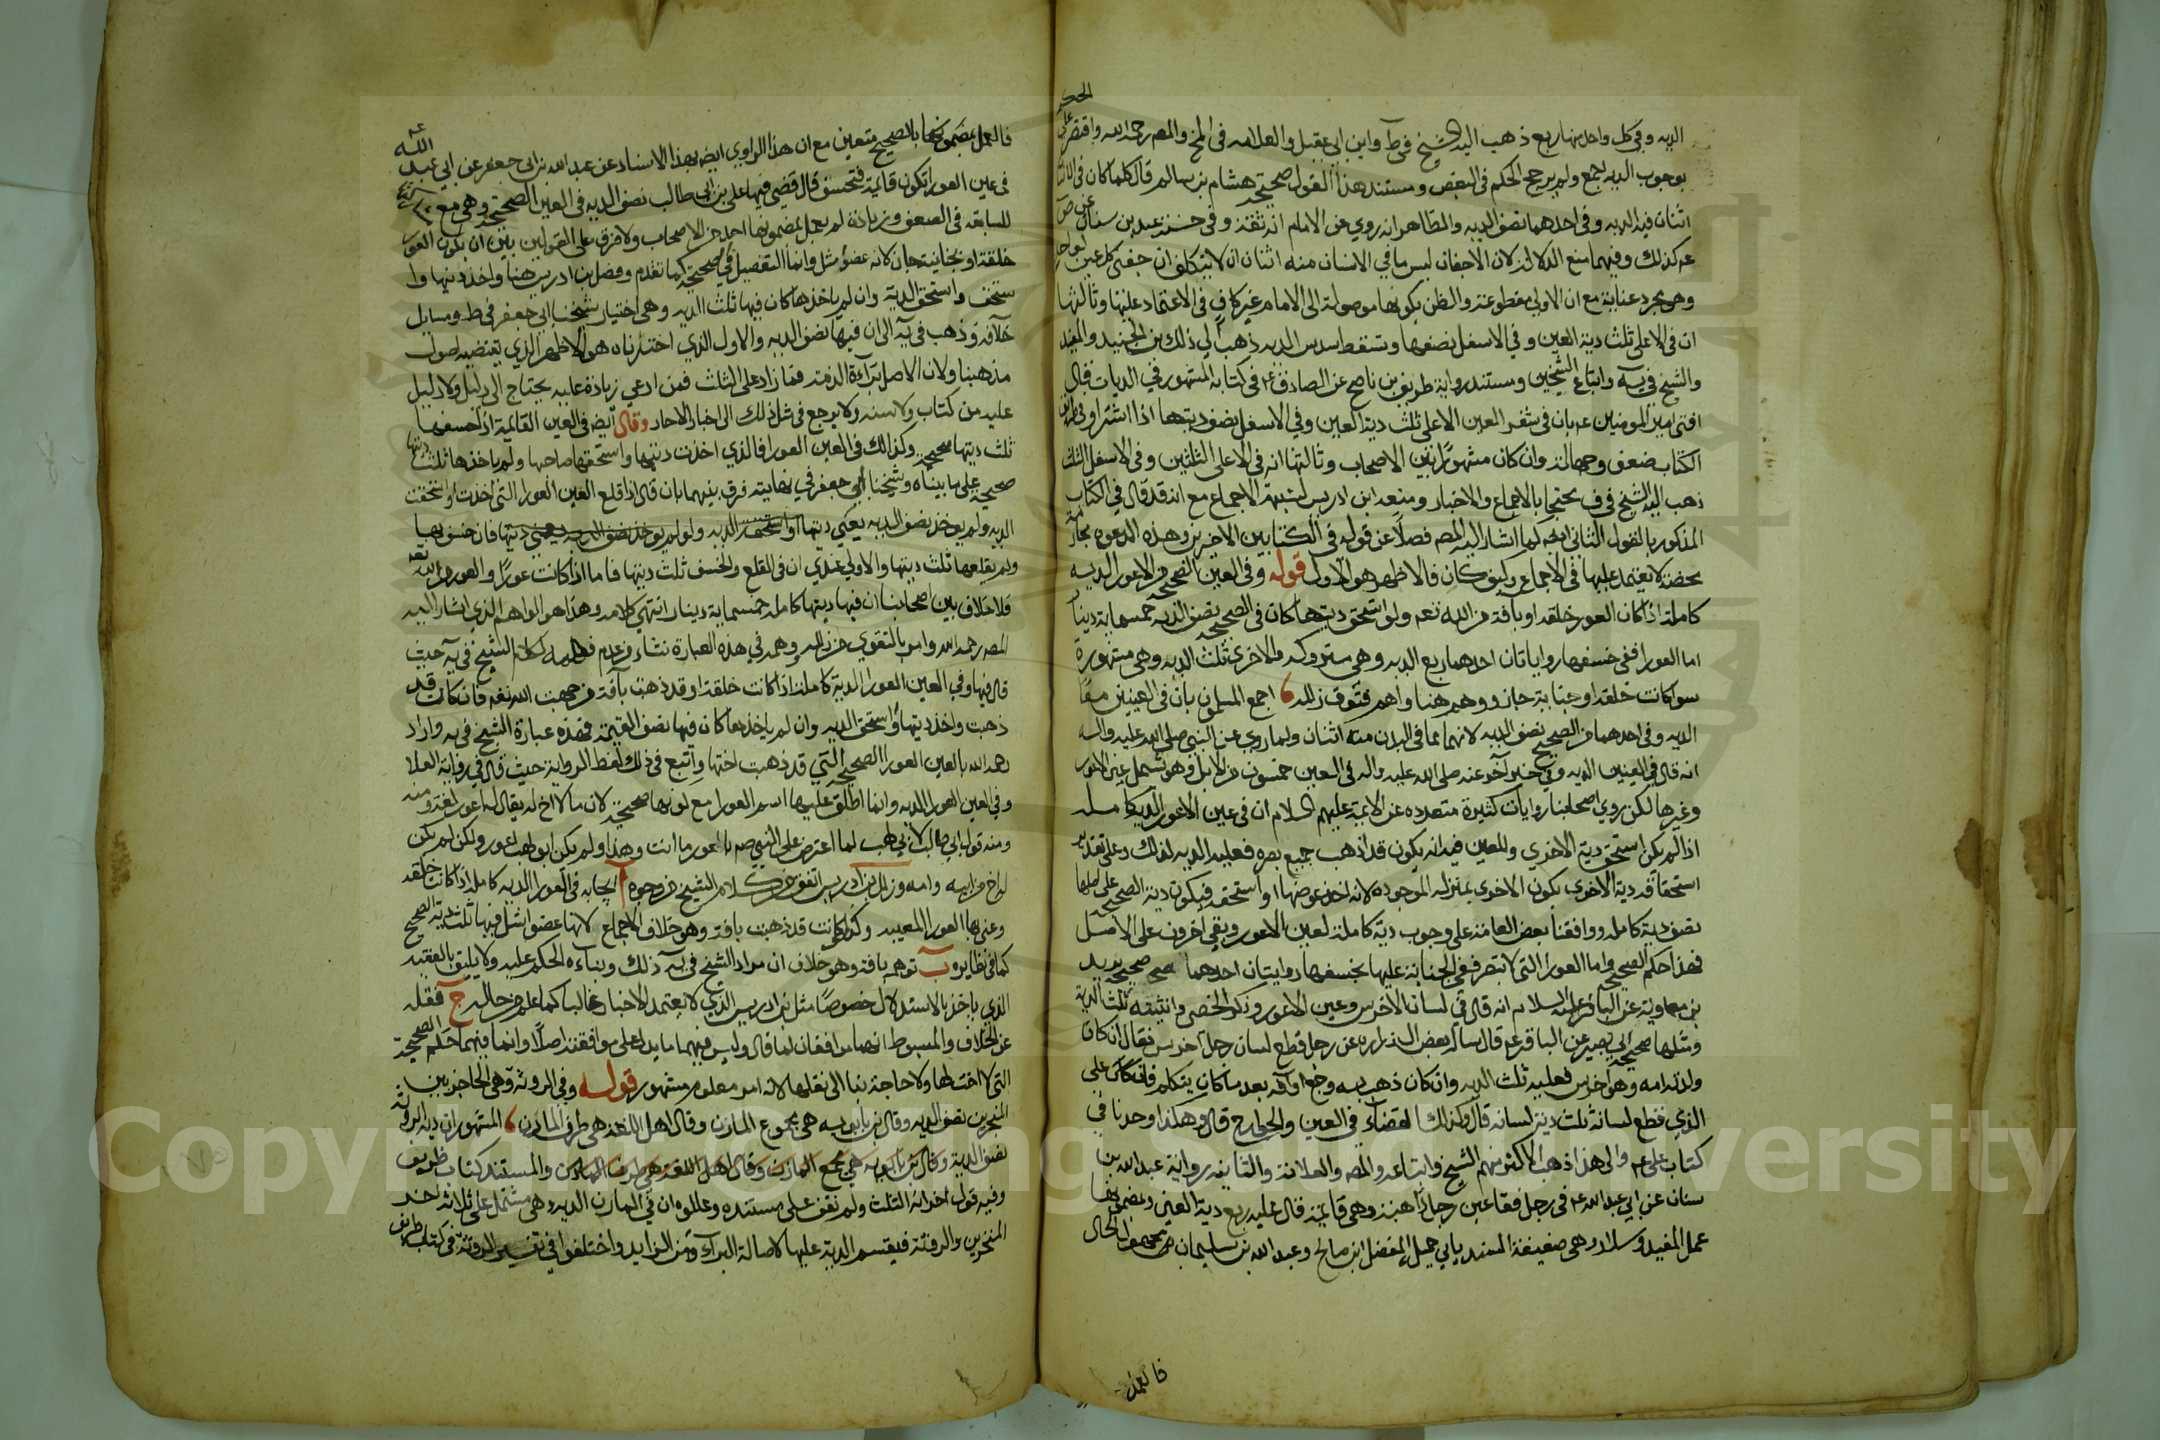 الحكم
الديه وفي كل واحد منها ربع ذهب اليه الشيخ في ط وابن ابي عقيل والعلامه في المخ والمص رحمه الله واقتصر على
بوجوب الديه اجمع ولم يرجح الحكم في البعض ومستند هذا القول صحيحة هشام بن سالم قال كلما كان في الانسان
اثنان فيه الديه وفي احدهما نصف الديه والظاهر انه روي عن الامام انه ثقة وفي حسنة عبد الله بن سنان عن ص
عم كذلك وفيهما منع الدلالة لان الاجفان ليس مما في الانسان منه اثنان ان لا بتكلف ان جفني كل عين كواحد
وهو مجرد عناية مع ان الاولى مقطوعة والظن بكونها موصولة الى الامام غير كاف في الاعتماد عليها وثالثها
ان في الاعلى ثلث دية العين وفي الاسفل نصفها وتسقط سدس الديه ذهب الى ذلك بن الجنيد والمفيد
والشيخ في يه واتباع الشيخين ومستنده رواية ظريف بن ناصح عن الصادق ع في كتابه المشهور في الديات قال
افتى امير المومنين عم بان في شفر العين الاعلى ثلث دية العين وفي الاسفل نصف ديتها اذا اشترا وفي طريق
الكتاب ضعف وجهالة وان كان مشهورا بين الاصحاب وثالثها انه في الاعلى الثلثين وفي الاسفل الثلث
ذهب اليه الشيخ في ف محتجا بالاجماع والاخبار ومنعه ابن ادريس لشبهة الاجماع مع انه قد قال في الكتاب
المذكور بالقول الثاني ايضا كما اشار اليه المص فضلا عن قوله في الكتابين الاخرين وهذه الدعوه مجازفة
محضة لا يعتمد عليها في الاجماع وكيف كان فالاظهر هو الاول قوله وفي العين الصحيحة من الاعور الديه
كاملة اذا كان العور خلقه او بافة من الله نعم ولو استحق ديتها كان في الصحيحة نصف الديه خمسماية دينار
اما العورا ففي خسفها روايتان احدهما ربع الديه وهي متروكه والاخرى ثلث الديه وهي مشهورة
سوا كانت خلقه او جناية جان ووهم هنا واهم فتوق زلله اجمع المسلمون بان في العينين معا
الديه وفي احدهما من الصحيح نصف الديه لانهما مما في البدن منه اثنان ولما روي عن النبي صلى الله عليه واله
انه قال في العينين الديه وفي خبر آخر عنه صلى الله عليه واله في العين خمسون من الابل فهو يشمل عين الاعور
وغيرها لكن روي اصحابنا روايات كثيرة متعدده عن الايمة عليهم السلام ان في عين الاعور الديه كامله
اذا لم يكن استحق دية الاخرى وللعين فيه انه يكون قد اذهب جميع بصره فعليه الديه لذلك وعلى تقدير
استحقاقه دية الاخرى يكون الاخرى بمنزلة الموجوده لانه اخذ عوضها او استحقه فيكون دية الصحيح على اصلها
نصف دية كامله ووافقنا بعض العامة على وجوب دية كاملة لعين الاعور وبقي اخرون على الاصل
فهذا حكم الصحيح واما العورا التي لا تبصر ففي الجناية عليها بخسفها روايتان احدهما صحيحة بريد
بن معاوية عن الباقر عليه السلام انه قال في لسان الاخرس وعين الاعور وذكر الخصي وانثييه ثلث الدية
ومثلها صحيحة ابي بصير عن الباقر عم قال سأله بعض ال زراره عن رجل قطع لسان رجل اخرس فقال ان كان
ولدته امه وهو اخرس فعليه ثلث الديه وان كان ذهب به وجع او آفه بعد ما كان يتكلم فان على
الذي قطع لسانه ثلث دية لسانه قال وكذلك القضاء في العين والجوارح قال هكذا وجدنا في
كتاب علي عم والى هذا ذهب الاكثر منهم الشيخ واتباعه والمص والعلامة والثانيه رواية عبد الله بن
سنان عن ابي عبد الله ع في رجل فقا عين رجل ذاهبة وهي قايمة قال عليه ربع دية العين وبمضمونها
عمل المفيد وسلار وهي ضعيفة السند بابي جميله المفضل ابن صالح وعبد الله بن سليمان الحال
فالعمل
فالعمل بمضمونها بالصحيح متعين مع ان هذا الراوي ايضا بهذا الاسناد عن عبد الله بن ابي جعفر عن ابي عبد الله عم
في عين العورا تكون قايمة فتخسف قال قضى فيها علي بن ابي طالب نصف الديه في العين الصحيحة وهي مع
للسابقه في الضعف وزيادة لم يعمل بمضمونها احد من الاصحاب ولا فرق على القولين بين ان يكون العور
خلقة او بجناية جان لانه عضو شل وانما التفصيل في الصحيحة كما تقدم وفصل بن ادريس هنا واخذ ديتها وا
ستخف واستحق الدية وان لم ياخذها كان فيها ثلث الديه وهي اختيار شيخنا ابي جعفر في ط ومسايل
خلافه وذهب في يه الى ان فيها نصف الديه والاول الذي اخترناه هو الاظهر الذي يقتضيه اصول
مذهبنا ولان الاصل براءة الذمه فما زاد على الثلث فمن ادعى زيادة عليه يحتاج الى دليل ولا دليل
عليه من كتاب ولا سنه ولا يرجع في مثل ذلك الى اخبار الاحاد وقال ايضا في العين القايمة اذا خسف بها
ثلث ديتها صحيحة وكذلك في العين العورا فالذي اخذت ديتها واستحقها صاحبها ولم ياخذها ثلث ديتها
صحيحة على ما بيناه وشيخنا ابي جعفر في نهايته فرق بينهما بان قال اذا قلع العين العورا التي اخذت او استحقت
الديه ولم يوخذ نصف الديه يعني ديتها او استحقت الديه ولو لم يوخذ نصف الديه يعني ديتها فان خسف بها
ولم يقلعها ثلث ديتها والاولى عندي ان في القلع والخسف ثلث ديتها فاما اذا كانت عورا والعور من الله تعه
فلا خلاف بين اصحابنا ان فيها ديتها كامله خمسماية دينار انتهى كلامه وهذا هو الواهم الذي اشار اليه
المص رحمه الله وامر بالتقوي من زلله ووهمه في هذه العبارة نشاء من عدم فهمه لكلام الشيخ في يه حيث
قال فيها وفي العين العورا الدية كاملة اذا كانت خلقة او قد ذهبت بآفة من جهة الله نعم فان كانت قد
ذهبت واخذ ديتها او استحق الديه وان لم ياخذها كان فيها نصف القيمة فهذه عبارة الشيخ في يه واراد
رحمه الله بالعين العورا الصحيحة التي قد ذهبت اختها واتبع في ذلك لفظ الرواية حيث قال في رواية العلا
وفي العين العورا الديه وانما اطلق عليها اسم العورا مع كونها صحيحة لان ما لا اخ له يقال له اعور لغة ومنه
ومنه قول ابي طالب لابي لهب لما اعترض على النبي صم يا اعور ما انت وهذا ولم يكن ابو لهب اعور ولكن لم يكن
له اخ من ابيه وامه وزلل بن ادريس اتفق من كلام الشيخ من وجوه آ ايجابه في العورا الديه كامله اذا كانت خلقه
وعنى بها العورا المعيبه وكذا كانت قد ذهبت بافة وهو خلاف الاجماع لانها عضو اشل فيها ثلث دية الصحيح
كما في نظايره ب توهم بافة وهو خلاف ان مراد الشيخ في يه ذلك وبناءه الحكم عليه ولا يليق بالفقيه
الذي ياخذ بالاستدلال خصوصا مثل بن ادريس الذي لا يعتمد الاخبار غالبا كما علم من حاله ج نقله
عن الخلاف والمبسوط انهما موافقان لما قال وليس فيهما ما يدل على موافقته اصلا وانما فيهما حكم الصحيحة
التي لا اخت لها ولا حاجة بنا الى نقلها لانه امر معلوم مشهور قوله وفي الروثة وهي الحاجز بين
المنخرين نصف الديه وقال بن بابويه هي مجموع المارن وقال اهل اللغه هي طرف المارن المشهور ان دية الروثة
نصف الدية وقال بن بابويه هي مجمع المارن وقال اهل اللغة هي طرف المارن والمستند كتاب ظريف
وفيه قول اخر انه الثلث ولم نقف على مستنده وعللوه ان في المارن الديه وهي مشتمل على ثلاثة احد
المنخرين والروثة فيقسم الدية عليها لاصالة البراءة من الزايد واختلفوا في تفسير الروثة ففي كتاب ظريف
Copyright © King Saud University